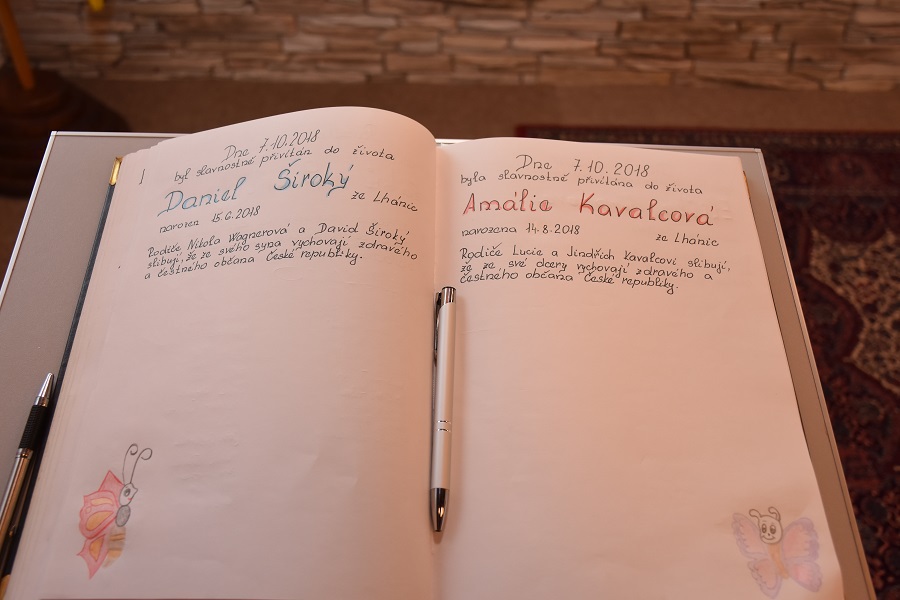 Dne 7.10.2018
byl slavnostně přivítán do života
Daniel Široký ze Lhánic
narozen 15.6.2018
Rodiče Nikola Wagnerová a David Široký
slibují, že ze svého syna vychovají zdravého
a čestného občana České republiky.
Dne 7.10.2018
byla slavnostně přivítána do života
Amálie Kavalcová
narozena 14.8.2018 ze Lhánic
Rodiče Lucie a Jindřich Kavalcovi slibují,
že ze své dcery vychovají zdravého a
čestného občana České republiky.